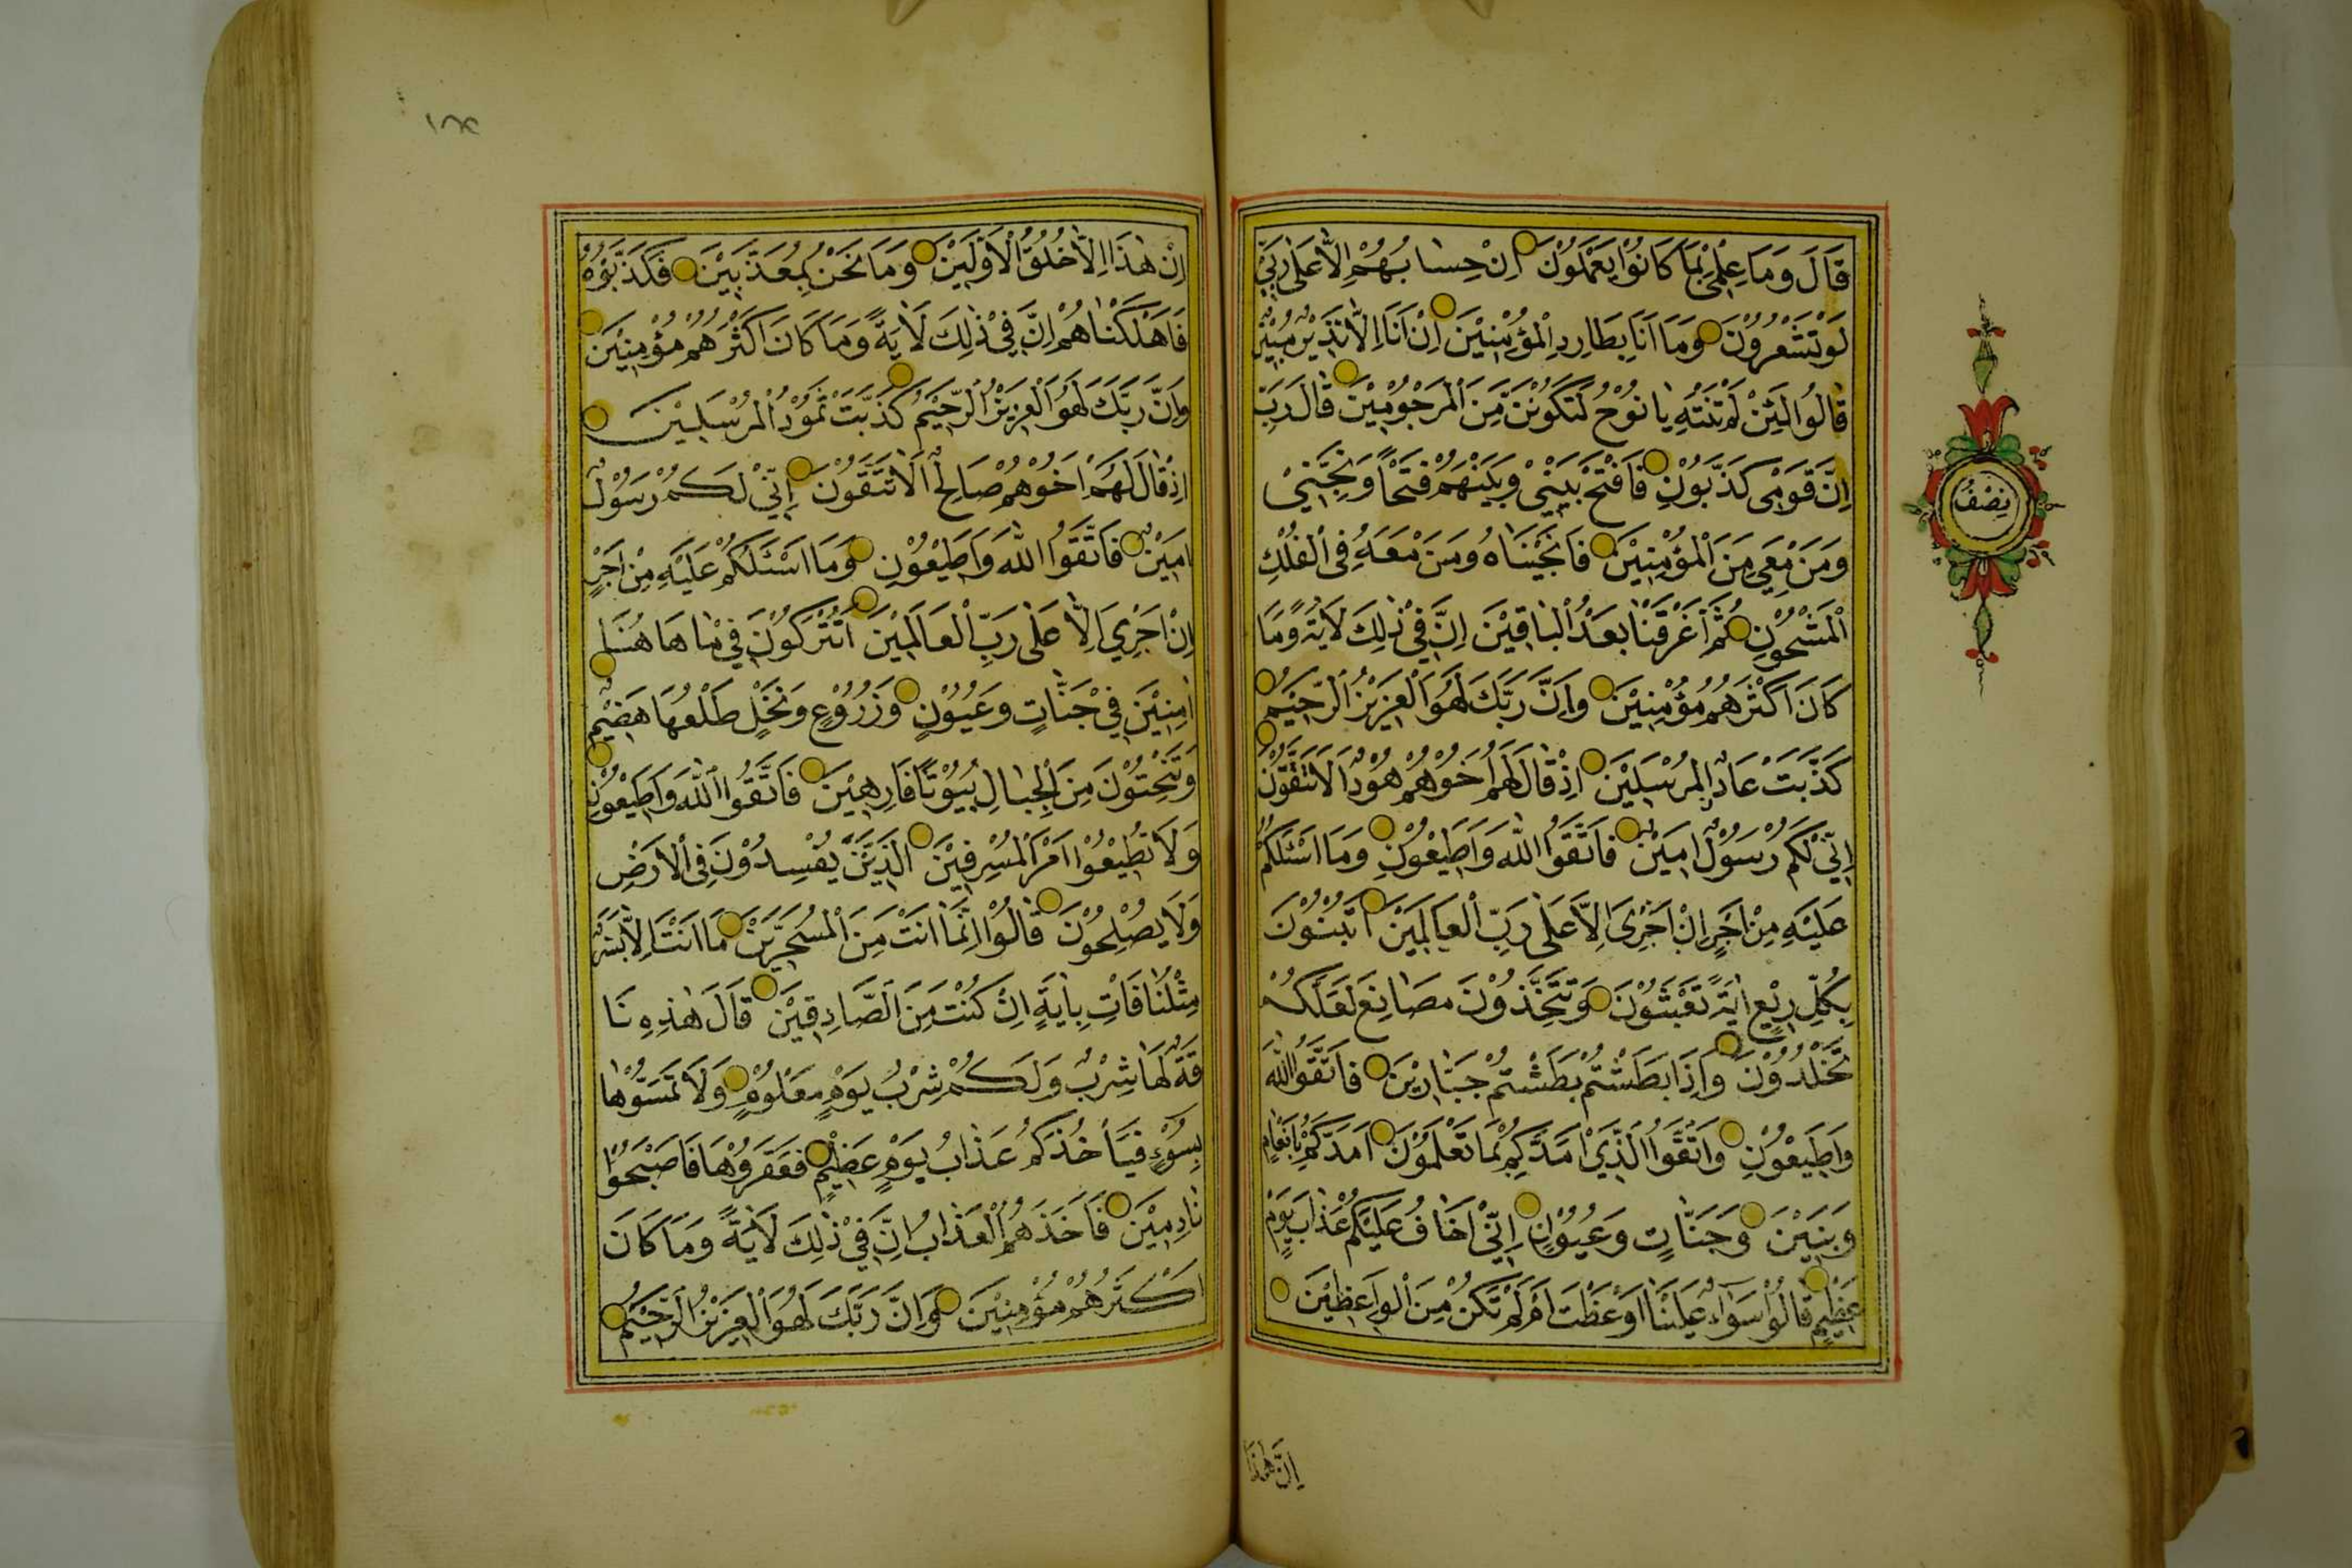 قَالَ وَمَا عِلْمِي بِمَا كَانُوا يَعْمَلُوْنَ اِنْ حِسَابُهُمْ اِلَّا عَلٰى رَبِّيْ
لَوْ تَشْعُرُوْنَ وَمَا اَنَا بِطَارِدِ الْمُؤْمِنِيْنَ اِنْ اَنَا اِلَّا نَذِيْرٌ مُبِيْنٌ
قَالُوا لَئِنْ لَمْ تَنْتَهِ يَا نُوْحُ لَتَكُوْنَنَّ مِنَ الْمَرْجُوْمِيْنَ قَالَ رَبِّ
اِنَّ قَوْمِى كَذَّبُوْنِ فَافْتَحْ بَيْنِيْ وَبَيْنَهُمْ فَتْحًا وَنَجِّنِيْ
وَمَنْ مَعِيَ مِنَ الْمُؤْمِنِيْنَ فَاَنْجَيْنَاهُ وَمَنْ مَعَهُ فِى الْفُلْكِ
الْمَشْحُوْنِ ثُمَّ اَغْرَقْنَا بَعْدُ الْبَاقِيْنَ اِنَّ فِيْ ذٰلِكَ لَاٰيَةً وَمَا
كَانَ اَكْثَرُهُمْ مُؤْمِنِيْنَ وَاِنَّ رَبَّكَ لَهُوَ الْعَزِيْزُ الرَّحِيْمُ
كَذَّبَتْ عَادٌ الْمُرْسَلِيْنَ اِذْ قَالَ لَهُمْ اَخُوْهُمْ هُوْدٌ اَلَا تَتَّقُوْنَ
اِنِّيْ لَكُمْ رَسُوْلٌ اَمِيْنٌ فَاتَّقُوا اللّٰهَ وَاَطِيْعُوْنِ وَمَا اَسْئَلُكُمْ
عَلَيْهِ مِنْ اَجْرٍ اِنْ اَجْرِىَ اِلَّا عَلٰى رَبِّ الْعَالَمِيْنَ اَتَبْنُوْنَ
بِكُلِّ رِيْعٍ اٰيَةً تَعْبَثُوْنَ وَتَتَّخِذُوْنَ مَصَانِعَ لَعَلَّكُمْ
تَخْلُدُوْنَ وَاِذَا بَطَشْتُمْ بَطَشْتُمْ جَبَّارِيْنَ فَاتَّقُوا اللّٰهَ
وَاَطِيْعُوْنِ وَاتَّقُوا الَّذِيْ اَمَدَّكُمْ بِمَا تَعْلَمُوْنَ اَمَدَّكُمْ بِاَنْعَامٍ
وَبَنِيْنَ وَجَنَّاتٍ وَعُيُوْنٍ اِنِّيْ اَخَافُ عَلَيْكُمْ عَذَابَ يَوْمٍ
عَظِيْمٍ قَالُوْا سَوَاءٌ عَلَيْنَا اَوَعَظْتَ اَمْ لَمْ تَكُنْ مِنَ الْوَاعِظِيْنَ
اِنْ هٰذَا
نِصْفُ
اِنْ هٰذَا اِلَّا خُلُقُ الْاَوَّلِيْنَ وَمَا نَحْنُ بِمُعَذَّبِيْنَ فَكَذَّبُوْهُ
فَاَهْلَكْنَاهُمْ اِنَّ فِيْ ذٰلِكَ لَاٰيَةً وَمَا كَانَ اَكْثَرُهُمْ مُؤْمِنِيْنَ
وَاِنَّ رَبَّكَ لَهُوَ الْعَزِيْزُ الرَّحِيْمُ كَذَّبَتْ ثَمُوْدُ الْمُرْسَلِيْنَ
اِذْ قَالَ لَهُمْ اَخُوْهُمْ صَالِحٌ اَلَا تَتَّقُوْنَ اِنِّيْ لَكُمْ رَسُوْلٌ
اَمِيْنٌ فَاتَّقُوا اللّٰهَ وَاَطِيْعُوْنِ وَمَا اَسْئَلُكُمْ عَلَيْهِ مِنْ اَجْرٍ
اِنْ اَجْرِيَ اِلَّا عَلٰى رَبِّ الْعَالَمِيْنَ اَتُتْرَكُوْنَ فِيْ مَا هَاهُنَا
اٰمِنِيْنَ فِيْ جَنَّاتٍ وَعُيُوْنٍ وَزُرُوْعٍ وَنَخْلٍ طَلْعُهَا هَضِيْمٌ
وَتَنْحِتُوْنَ مِنَ الْجِبَالِ بُيُوْتًا فَارِهِيْنَ فَاتَّقُوا اللّٰهَ وَاَطِيْعُوْنِ
وَلَا تُطِيْعُوْا اَمْرَ الْمُسْرِفِيْنَ الَّذِيْنَ يُفْسِدُوْنَ فِى الْاَرْضِ
وَلَا يُصْلِحُوْنَ قَالُوْا اِنَّمَا اَنْتَ مِنَ الْمُسَحَّرِيْنَ مَا اَنْتَ اِلَّا بَشَرٌ
مِثْلُنَا فَاْتِ بِاٰيَةٍ اِنْ كُنْتَ مِنَ الصَّادِقِيْنَ قَالَ هٰذِهِ نَا
قَةٌ لَهَا شِرْبٌ وَلَكُمْ شِرْبُ يَوْمٍ مَعْلُوْمٍ وَلَا تَمَسُّوْهَا
بِسُوْءٍ فَيَاْخُذَكُمْ عَذَابُ يَوْمٍ عَظِيْمٍ فَعَقَرُوْهَا فَاَصْبَحُوْا
نَادِمِيْنَ فَاَخَذَهُمُ الْعَذَابُ اِنَّ فِيْ ذٰلِكَ لَاٰيَةً وَمَا كَانَ
اَكْثَرُهُمْ مُؤْمِنِيْنَ وَاِنَّ رَبَّكَ لَهُوَ الْعَزِيْزُ الرَّحِيْمُ